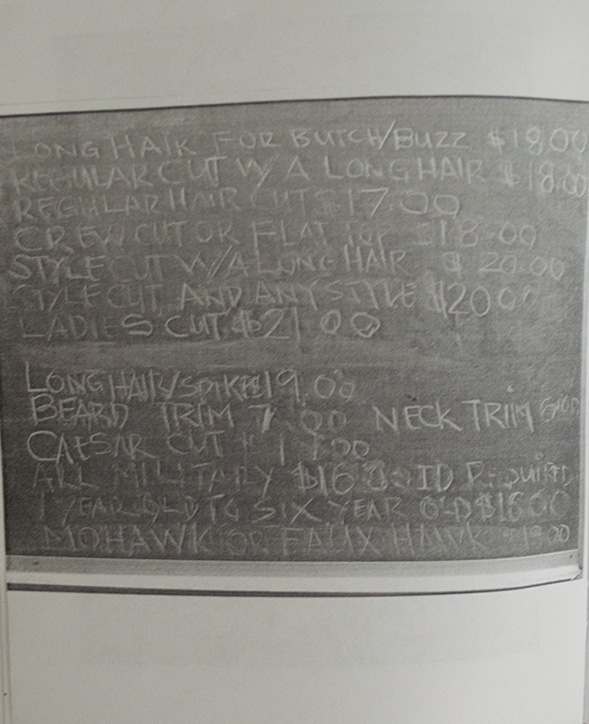 LONG HAIR FOR BUTCH/BUZZ $18,00
REGULAR CUT W/ A LONG HAIR $18.00
REGULAR HAIR CUT $17.00
CREW CUT OR FLAT TOP $18.00
STYLE CUT W/A LONG HAIR $20.00
STYLE CUT AND ANY STYLE $20.00
LADIES CUT $21.00
LONG HAIR/SPIKE 19.00
BEARD TRIM 7.00 NECK TRIM
CAESAR CUT
ALL MILITARY $16.00 ID REQUIRED
1 YEAR OLD TO SIX YEAR OLD $16.00
MOHAWK OR FAUX HAWK